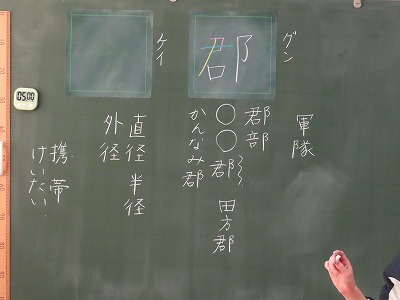 グン
郡
軍隊
郡部
○○郡
田方郡
かんなみ郡
ケイ
直径 半径
外径
携帯
けいたい
05:00